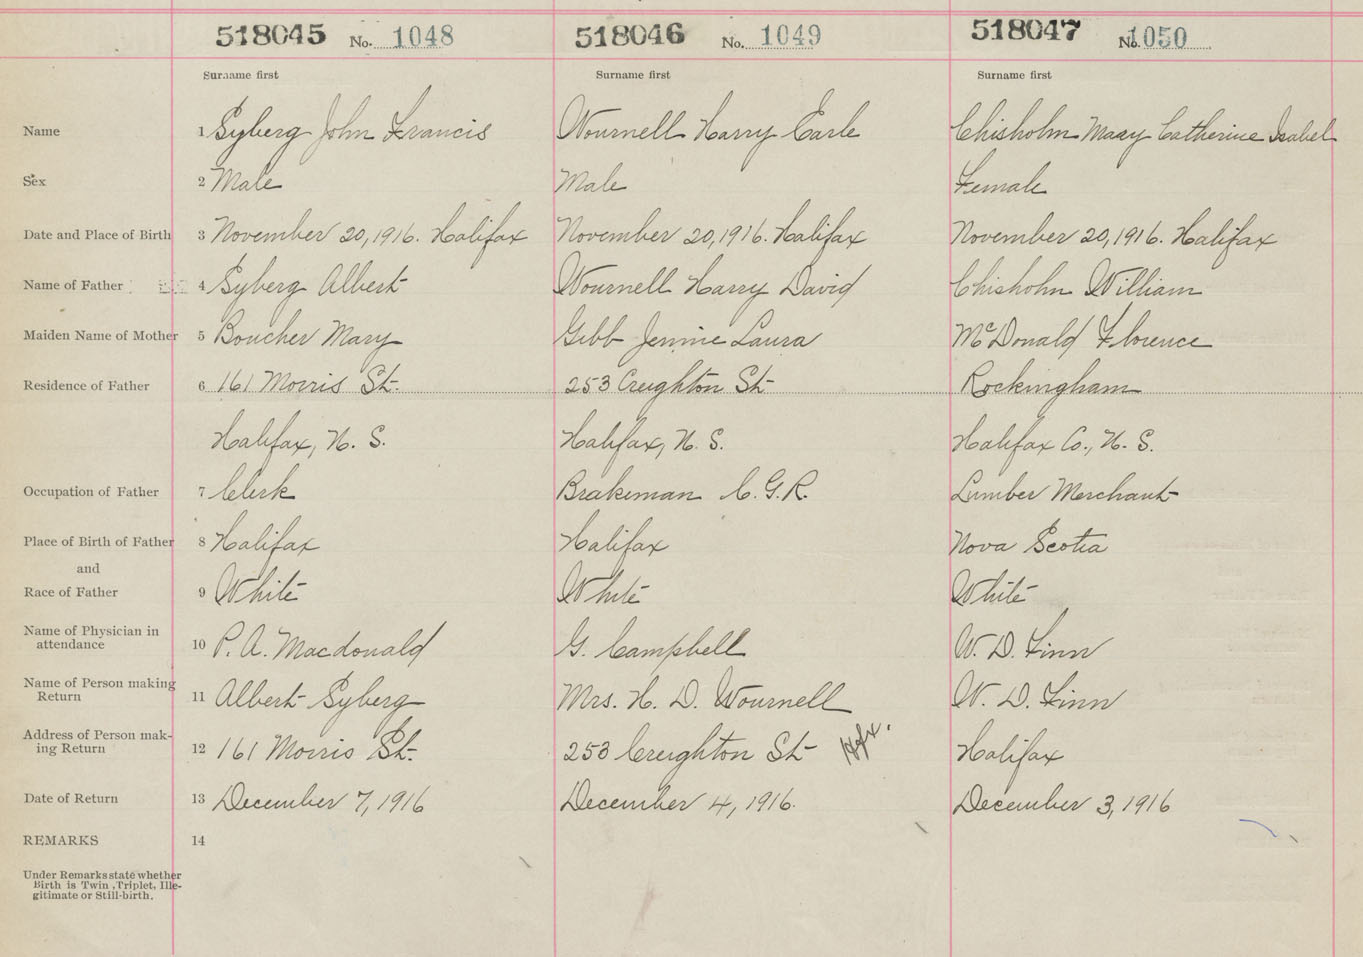 518045 No. 1048 518046 No. 1049 518047 No. 1050
Surname first Surname first Surname first
Name 1 Syberg John Francis Wournell Harry Earle Chisholm Mary Catherine Isabel
Sex 2 Male Male Female
Date and Place of Birth 3 November 20, 1916. Halifax November 20, 1916. Halifax November 20, 1916. Halifax
Name of Father 4 Syberg Albert Wournell Harry David Chisholm William
Maiden Name of Mother 5 Boucher Mary Gibb Jennie Laura McDonald Florence
Residence of Father 6 161 Morris St. 253 Creighton St Rockingham
Halifax, N. S. Halifax, N. S. Halifax Co., N. S.
Occupation of Father 7 Clerk Brakeman C. G. R. Lumber Merchant
Place of Birth of Father 8 Halifax Halifax Nova Scotia
and
Race of Father 9 White White White
Name of Physician in
attendance 10 P. A. Macdonald G. Campbell W. D. Finn
Name of Person making
Return 11 Albert Syberg Mrs. H. D. Wournell W. D. Finn
Address of Person mak-
ing Return 12 161 Morris St. 253 Creighton St Hfx. Halifax
Date of Return 13 December 7, 1916 December 4, 1916. December 3, 1916
REMARKS 14
Under Remarks state whether
Birth is Twin, Triplet, Ille-
gitimate or Still-birth.